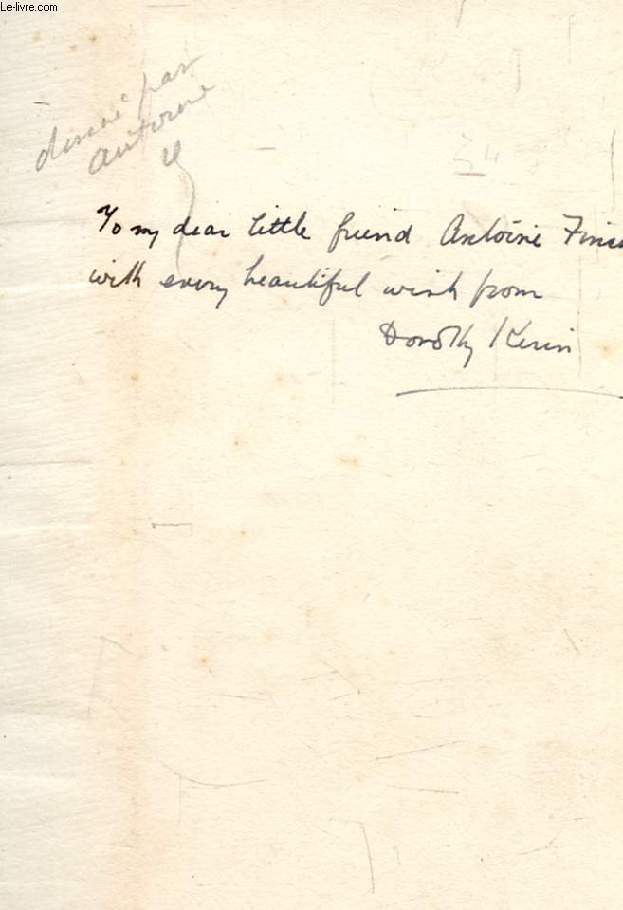 Le-livre.com
par
Antoine
To my dear little friend Antoine
with every beautiful wish from
Dorothy Kerin